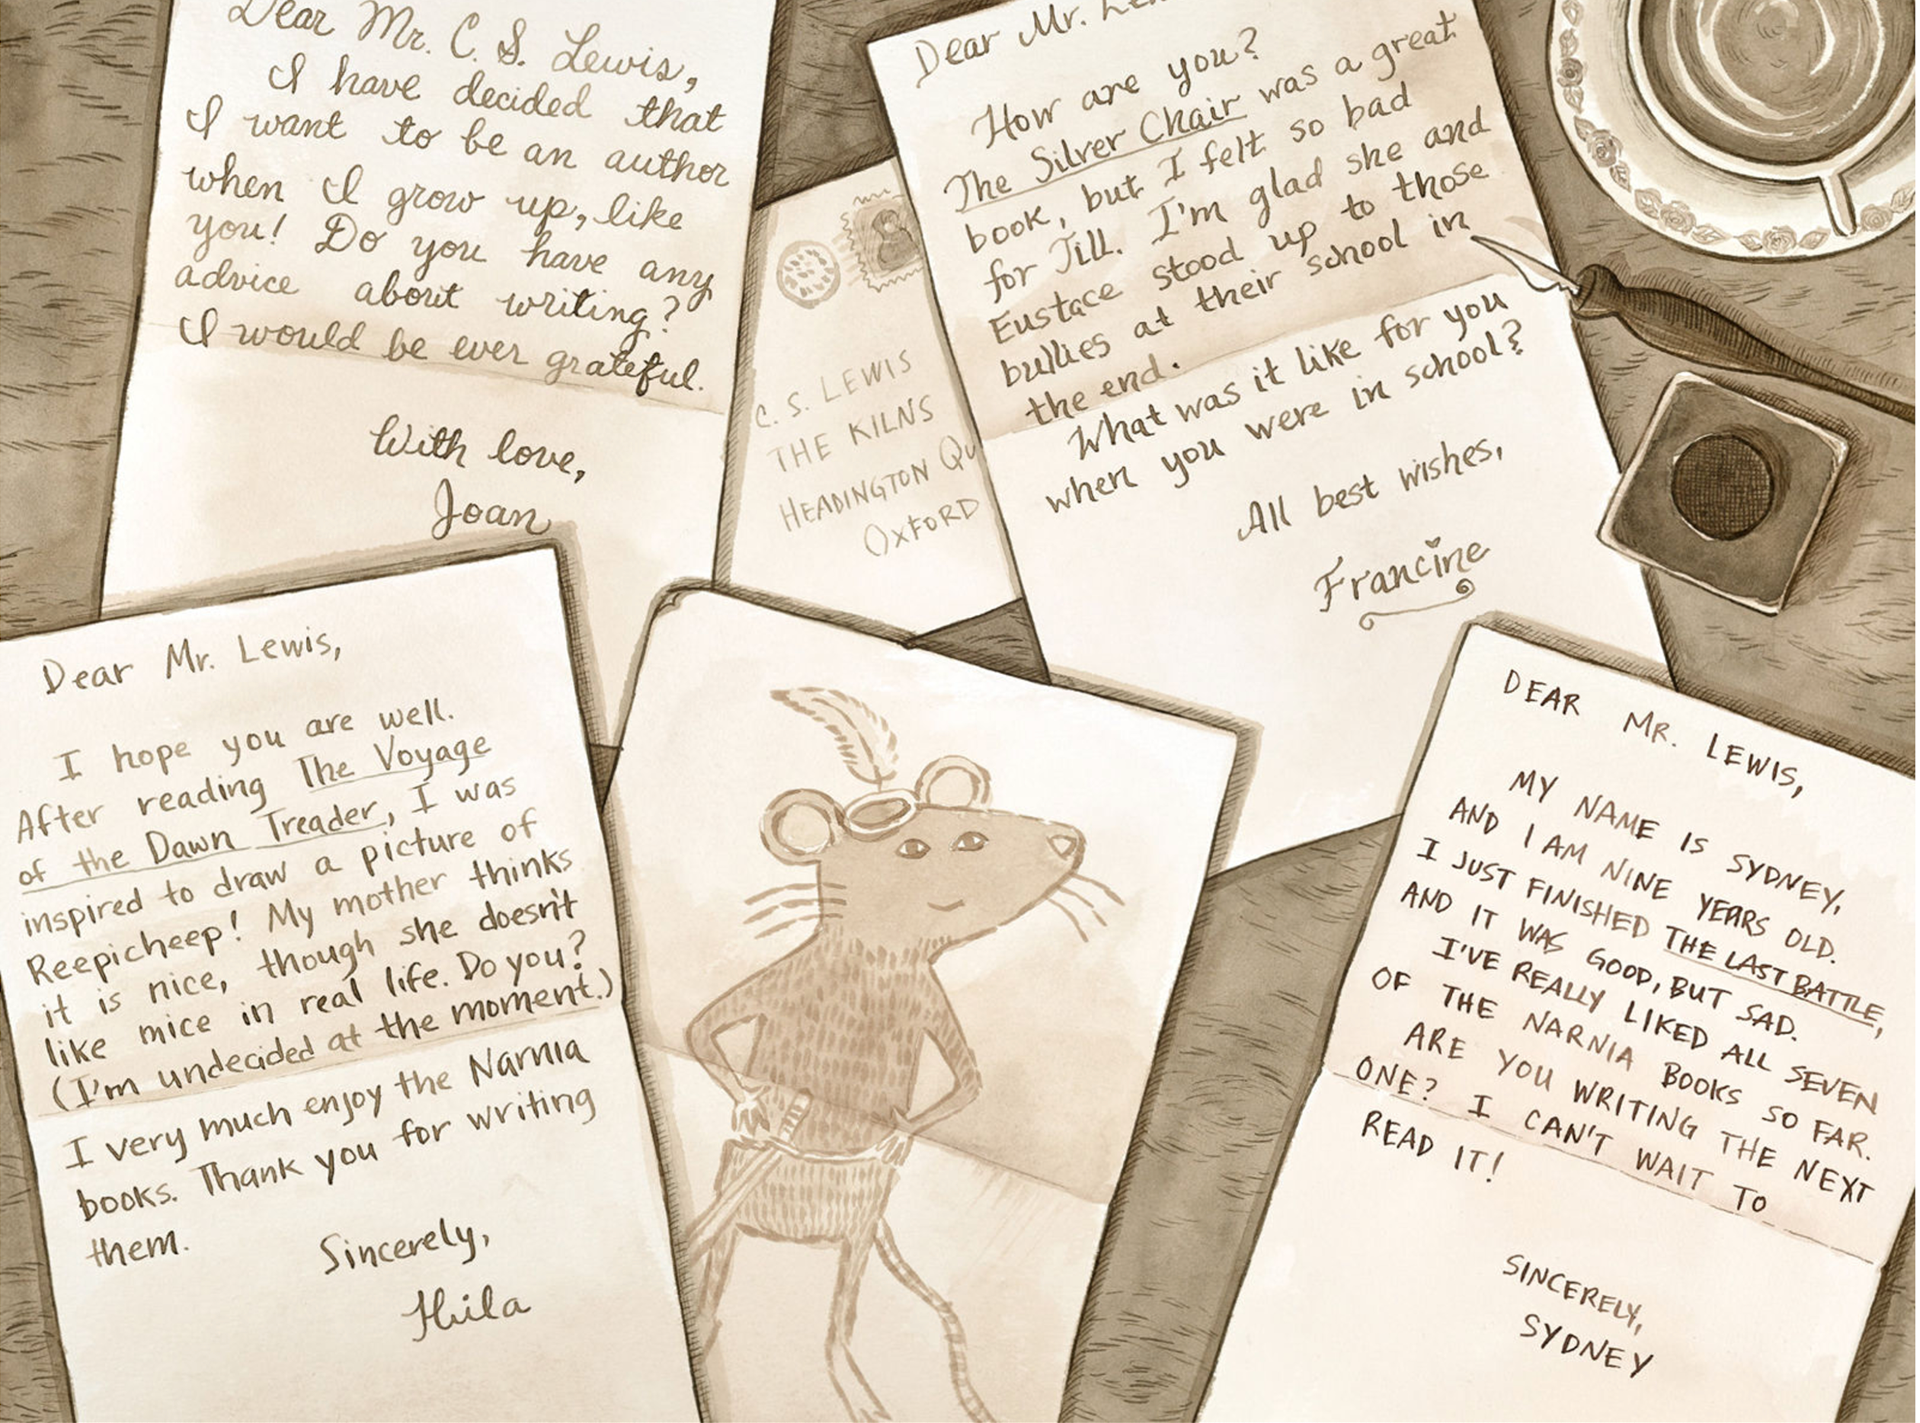 Dear Mr. C. S. Lewis,
I have decided that
I want to be an author
when I grow up, like
you! Do you have any
advice about writing?
I would be ever grateful.
With love,
Joan
C. S. LEWIS
THE KILNS
HEADINGTON QU
OXFORD
Dear Mr.
How are you?
The Silver Chair was a great
book, but I felt so bad
for Jill. I'm glad she and
Eustace stood up to those
bullies at their school in
the end.
What was it like for you
when you were in school?
All best wishes,
Francine
Dear Mr. Lewis,
I hope you are well.
After reading The Voyage
of the Dawn Treader, I was
inspired to draw a picture of
Reepicheep! My mother thinks
it is nice, though she doesn't
like mice in real life. Do you?
(I'm undecided at the moment.)
I very much enjoy the Narnia
books. Thank you for writing
them.
Sincerely,
Hila
DEAR MR. LEWIS,
MY NAME IS SYDNEY,
AND I AM NINE YEARS OLD.
I JUST FINISHED THE LAST BATTLE,
AND IT WAS GOOD, BUT SAD.
I'VE REALLY LIKED ALL SEVEN
OF THE NARNIA BOOKS SO FAR.
ARE YOU WRITING THE NEXT
ONE? I CAN'T WAIT TO
READ IT!
SINCERELY,
SYDNEY